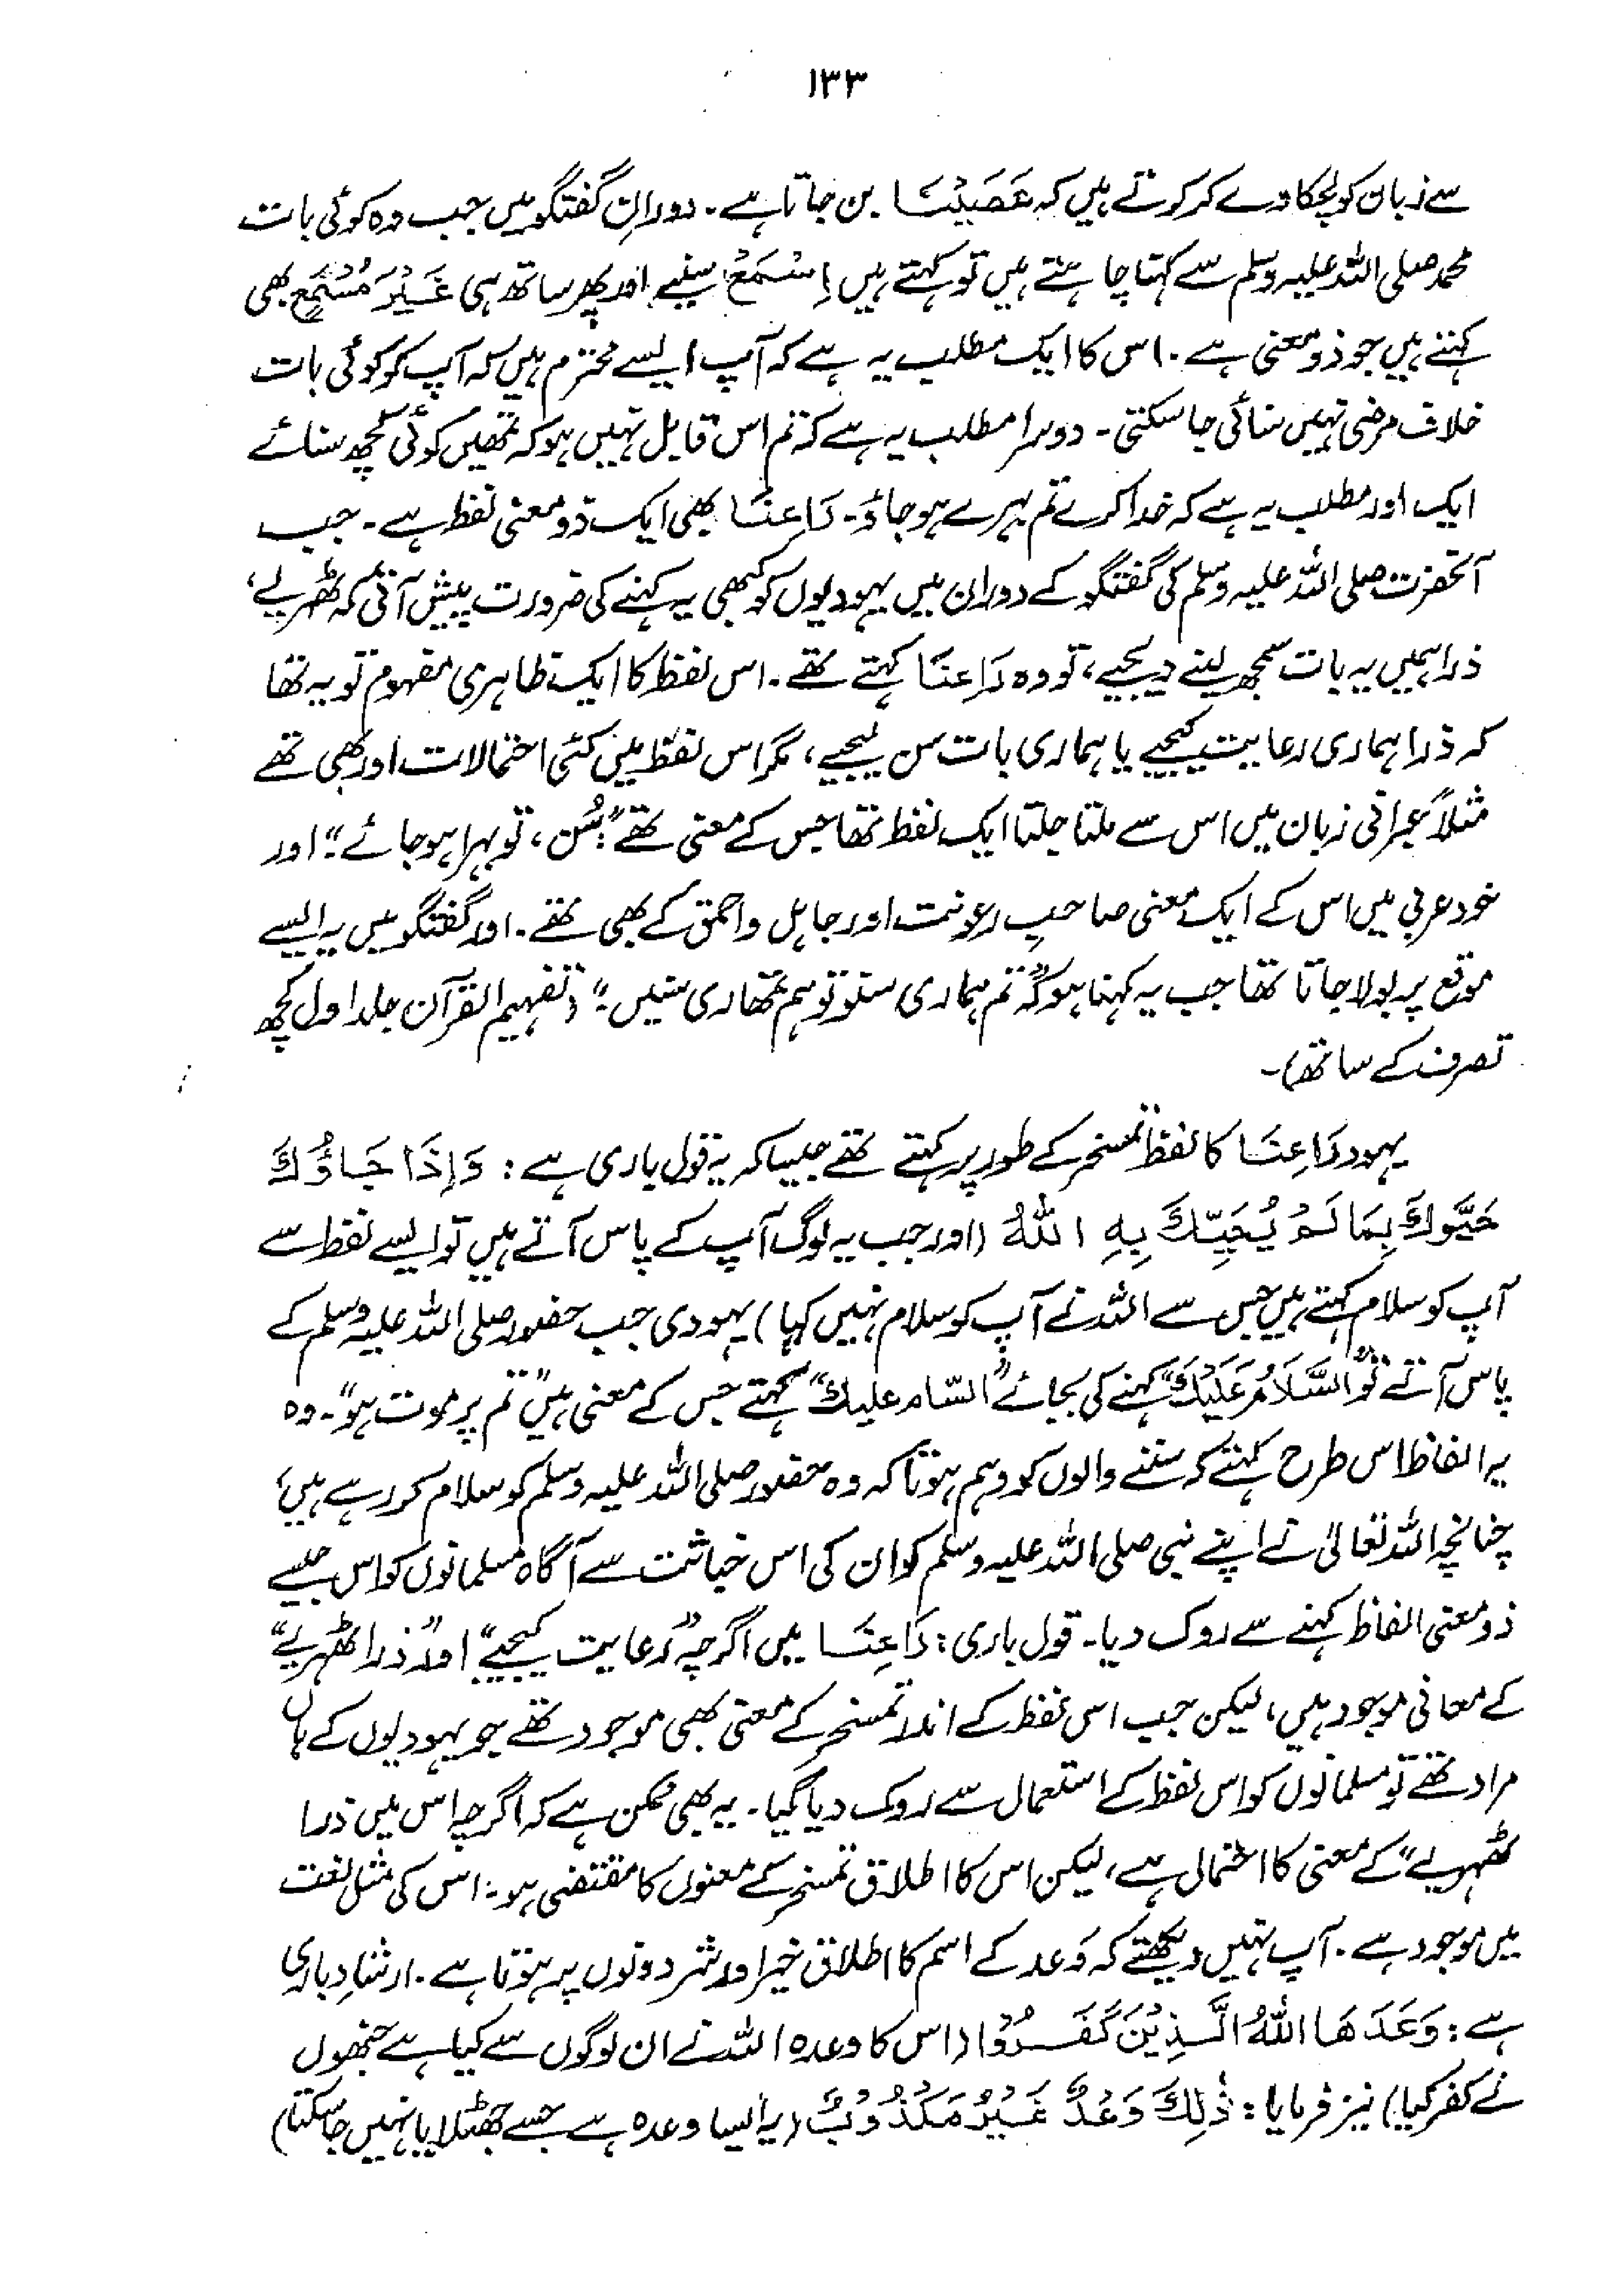 ۱۳۳
سے زبان کو لچکا دے کر کرتے ہیں کہ عَصَیْنَا بن جاتا ہے۔ دورانِ گفتگو میں جب وہ کوئی بات
محمد صلی اللہ علیہ وسلم سے کہنا چاہتے ہیں تو کہتے ہیں اِسْمَعْ سنیے اور پھر ساتھ ہی غَیْرَ مُسْمَعٍ بھی
کہتے ہیں جو ذو معنی ہے۔ اس کا ایک مطلب یہ ہے کہ آپ ایسے محترم ہیں کہ آپ کو کوئی بات
خلاف مرضی نہیں سنائی جا سکتی۔ دوسرا مطلب یہ ہے کہ تم اس قابل نہیں ہو کہ تمھیں کوئی کچھ سنائے
ایک اور مطلب یہ ہے کہ خدا کرے تم بہرے ہو جاؤ۔ رَاعِنَا بھی ایک ذو معنی لفظ ہے۔ جب
آنحضرت صلی اللہ علیہ وسلم کی گفتگو کے دوران میں یہودیوں کو کبھی یہ کہنے کی ضرورت پیش آتی کہ ٹھہریے،
ذرا ہمیں یہ بات سمجھ لینے دیجیے، تو وہ رَاعِنَا کہتے تھے۔ اس لفظ کا ایک ظاہری مفہوم تو یہ تھا
کہ ذرا ہماری رعایت کیجیے یا ہماری بات سن لیجیے، مگر اس لفظ میں کئی احتمالات اور بھی تھے
مثلاً عبرانی زبان میں اس سے ملتا جلتا ایک لفظ تھا جس کے معنی تھے "سُن، تو بہرا ہو جائے"۔ اور
خود عربی میں اس کے ایک معنی صاحبِ رعونت اور جاہل و احمق کے بھی تھے۔ اور گفتگو میں یہ ایسے
موقع پر بولا جاتا تھا جب یہ کہنا ہو کہ "تم ہماری سنو تو ہم تمھاری سنیں"۔ (تفہیم القرآن جلد اول کچھ
تصرف کے ساتھ)۔
یہود رَاعِنَا کا لفظ تمسخر کے طور پر کہتے تھے جیسا کہ یہ قول باری ہے: وَاِذَا جَاؤُكَ
حَيَّوكَ بِمَا لَمْ يُحَيِّكَ بِهِ اللّٰهُ (اور جب یہ لوگ آپ کے پاس آتے ہیں تو ایسے لفظ سے
آپ کو سلام کہتے ہیں جس سے اللہ نے آپ کو سلام نہیں کہا) یہودی جب حضور صلی اللہ علیہ وسلم کے
پاس آتے تو "السَّلَامُ عَلَیْكَ" کہنے کی بجائے "السّام علیك" کہتے جس کے معنی ہیں "تم پر موت ہو"۔ وہ
یہ الفاظ اس طرح کہتے کہ سننے والوں کو وہم ہوتا کہ وہ حضور صلی اللہ علیہ وسلم کو سلام کر رہے ہیں،
چنانچہ اللہ تعالیٰ نے اپنے نبی صلی اللہ علیہ وسلم کو ان کی اس خباثت سے آگاہ مسلمانوں کو اس جیسے
ذو معنی الفاظ کہنے سے روک دیا۔ قول باری: رَاعِنَا میں اگرچہ "رعایت کیجیے" اور "ذرا ٹھہریے"
کے معانی موجود ہیں، لیکن جب اس لفظ کے اندر تمسخر کے معنی بھی موجود تھے جو یہودیوں کے ہاں
مراد تھے تو مسلمانوں کو اس لفظ کے استعمال سے روک دیا گیا۔ یہ بھی ممکن ہے کہ اگرچہ اس میں ذرا
ٹھہریے" کے معنی کا احتمال ہے، لیکن اس کا اطلاق تمسخر کے معنوں کا مقتضی ہو۔ اس کی مثل لغت
میں موجود ہے۔ آپ نہیں دیکھتے کہ وَعد کے اسم کا اطلاق خیر اور شر دونوں پر ہوتا ہے۔ ارشادِ باری
ہے: وَعَدَهَا اللّٰهُ الَّذِيْنَ كَفَرُوْا (اس کا وعدہ اللہ نے ان لوگوں سے کیا ہے جنھوں
نے کفر کیا) نیز فرمایا: ذٰلِكَ وَعْدٌ غَيْرُ مَكْذُوْبٍ (یہ ایسا وعدہ ہے جسے جھٹلایا نہیں جا سکتا)